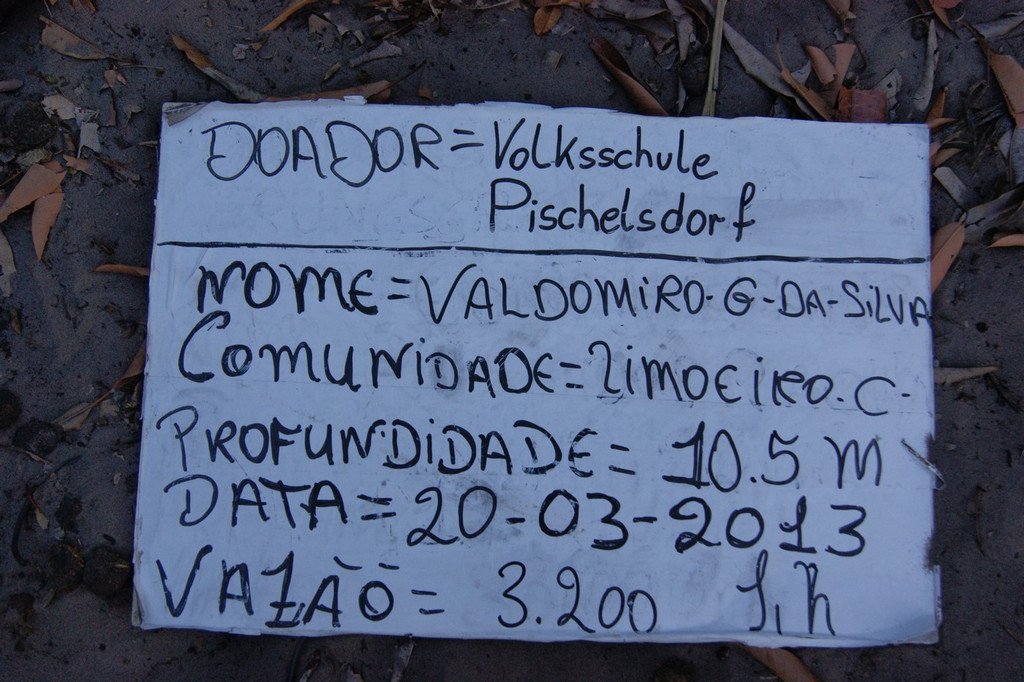 DOADOR = Volksschule
Pischelsdorf
NOME = VALDOMIRO - G - DA - SiLVA
COMUNiDADE = LiMOEiRO . C -
PROFUNDiDADE = 10.5 M
DATA = 20-03-2013
VAZÃO = 3.200 l, h